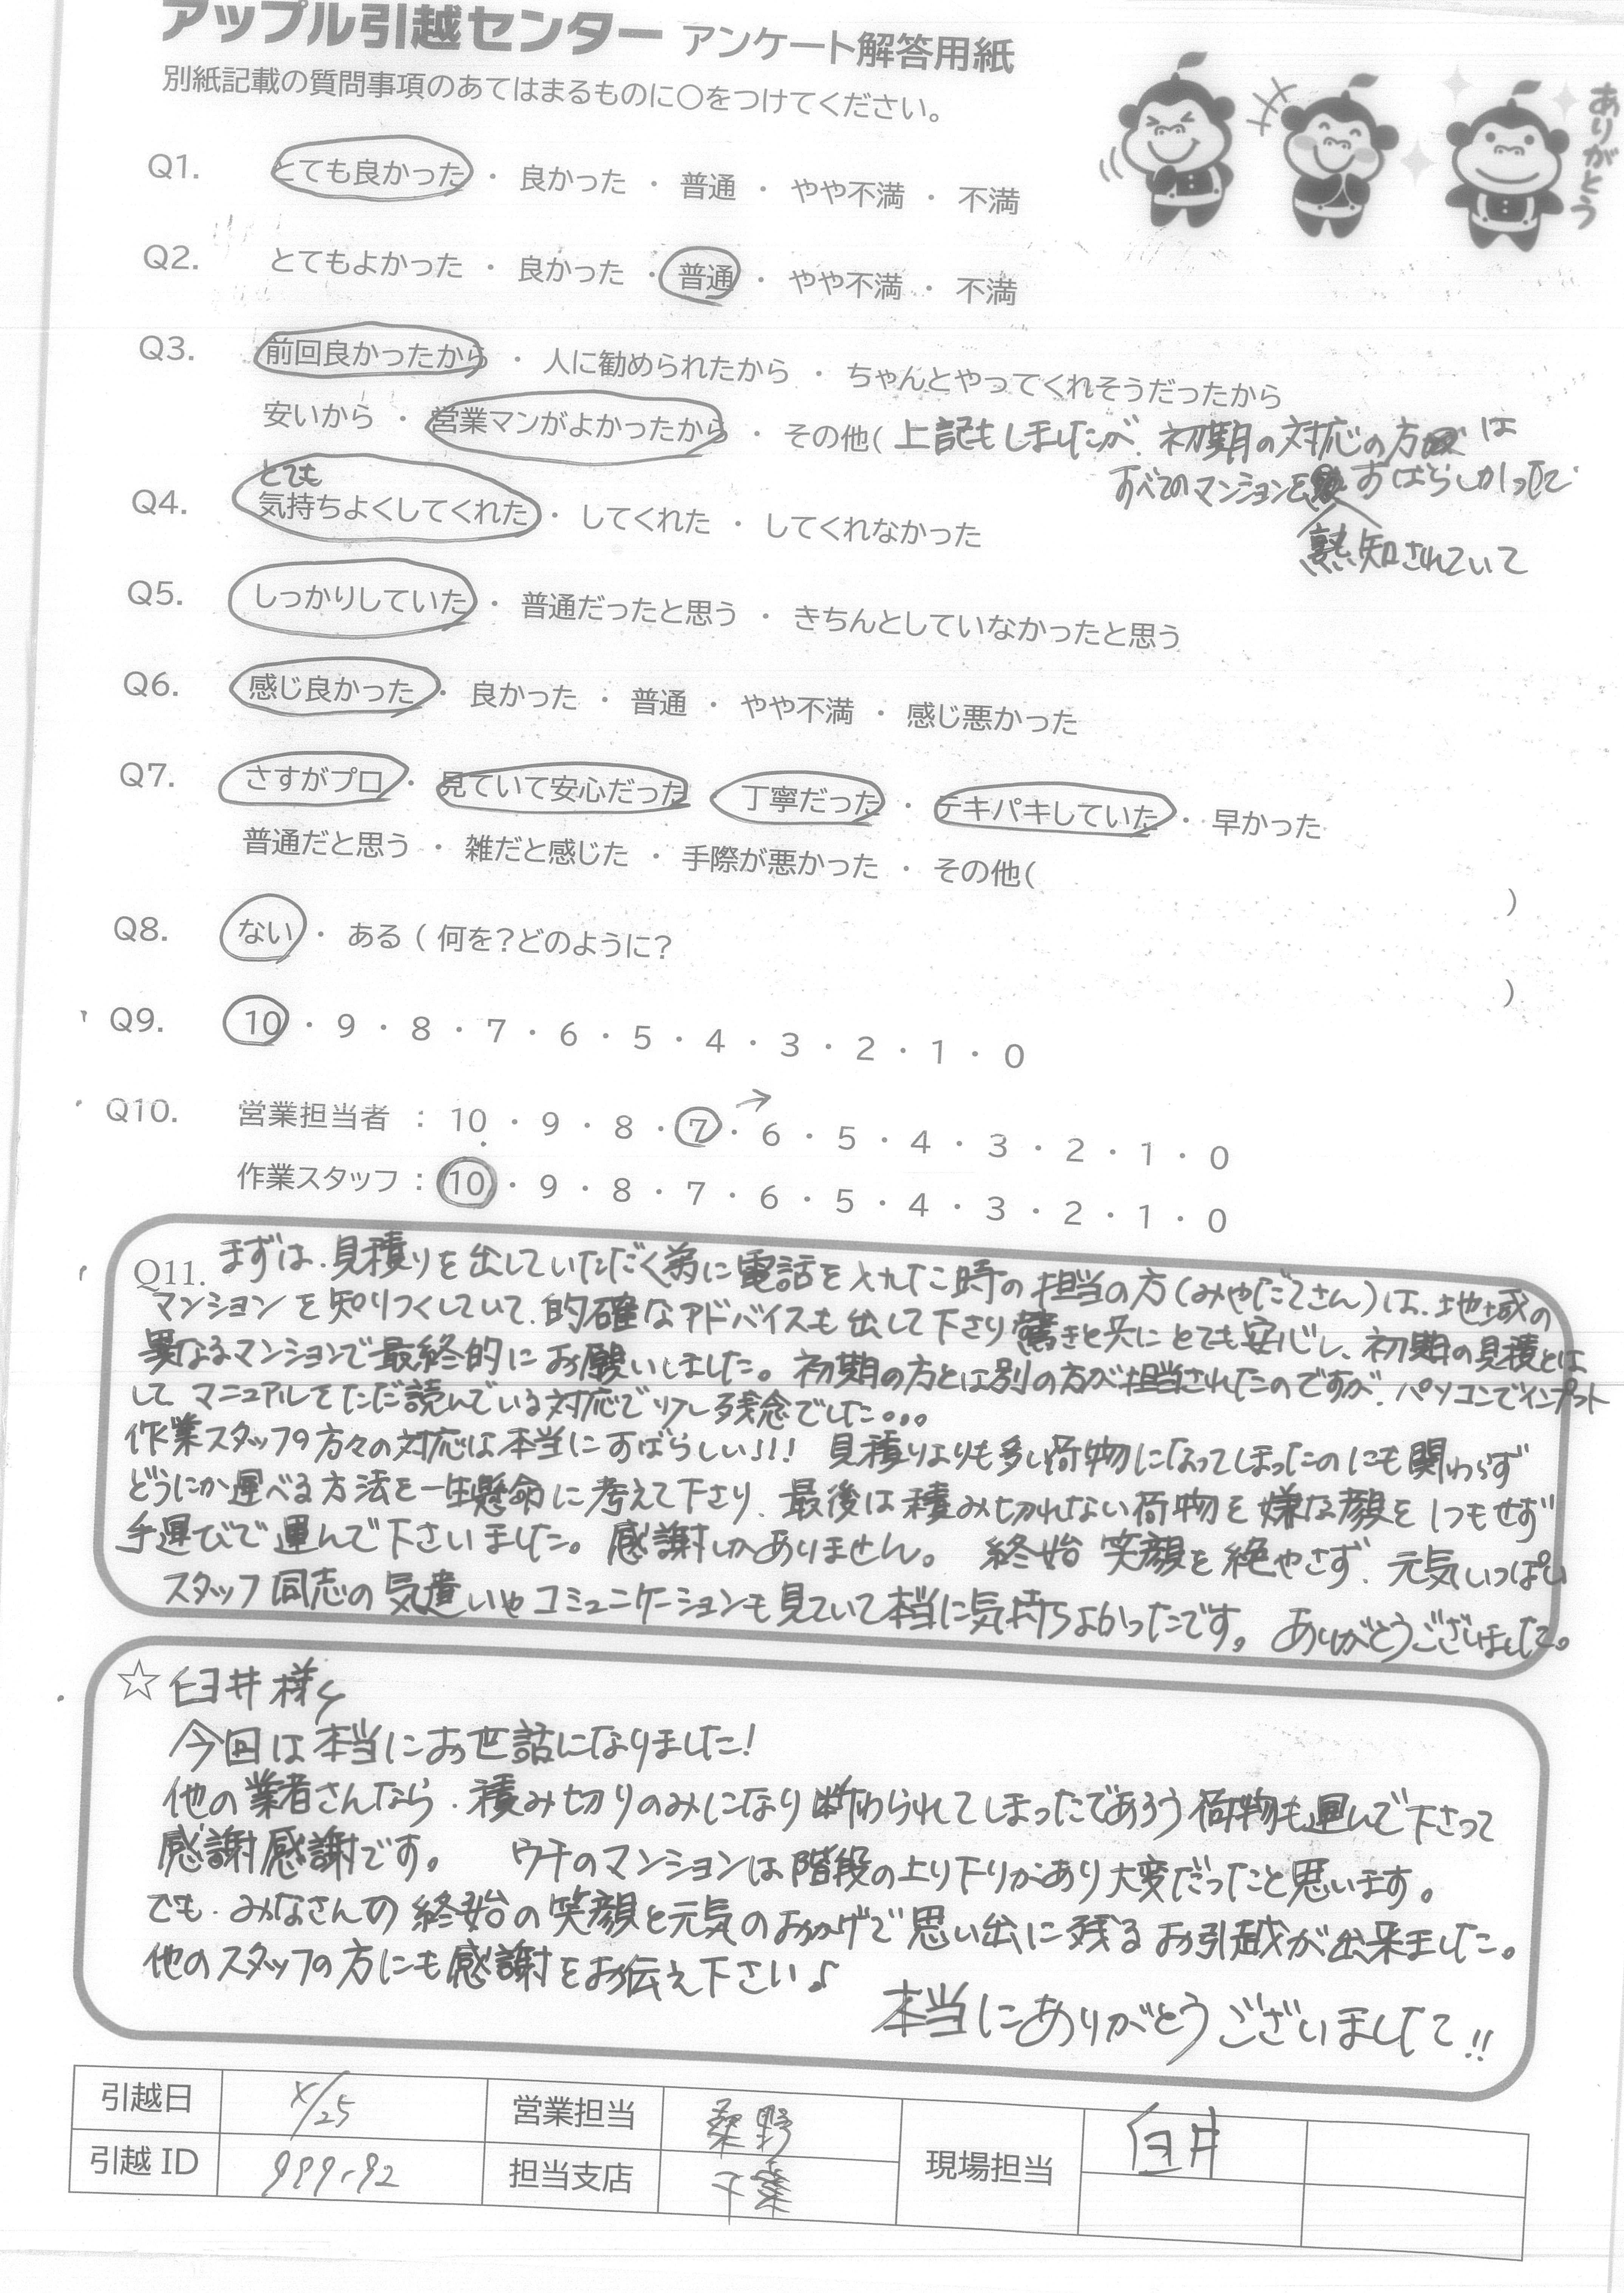 アップル引越センター アンケート解答用紙
別紙記載の質問事項のあてはまるものに〇をつけてください。
ありがとう
Q1. とても良かった ・ 良かった ・ 普通 ・ やや不満 ・ 不満
Q2. とてもよかった ・ 良かった ・ 普通 ・ やや不満 ・ 不満
Q3. 前回良かったから ・ 人に勧められたから ・ ちゃんとやってくれそうだったから
安いから ・ 営業マンがよかったから ・ その他( 上記もしましたが、初期の対応の方は
すべてのマンションを すばらしかったで
熟知されていて
とても
Q4. 気持ちよくしてくれた ・ してくれた ・ してくれなかった
Q5. しっかりしていた ・ 普通だったと思う ・ きちんとしていなかったと思う
Q6. 感じ良かった ・ 良かった ・ 普通 ・ やや不満 ・ 感じ悪かった
Q7. さすがプロ ・ 見ていて安心だった 丁寧だった ・ テキパキしていた ・ 早かった
普通だと思う ・ 雑だと感じた ・ 手際が悪かった ・ その他( )
Q8. ない ・ ある ( 何を?どのように? )
Q9. 10 ・ 9 ・ 8 ・ 7 ・ 6 ・ 5 ・ 4 ・ 3 ・ 2 ・ 1 ・ 0
Q10. 営業担当者 : 10 ・ 9 ・ 8 ・ 7 ・ 6 ・ 5 ・ 4 ・ 3 ・ 2 ・ 1 ・ 0
作業スタッフ : 10 ・ 9 ・ 8 ・ 7 ・ 6 ・ 5 ・ 4 ・ 3 ・ 2 ・ 1 ・ 0
Q11. まずは、見積りを出していただく為に電話を入れた時の担当の方(みやだてさん)は、地域の
マンションを知りつくしていて、的確なアドバイスも出して下さり驚きと共にとても安心し、初期の見積とは
異なるマンションで最終的にお願いしました。初期の方とは別の方が担当されたのですが、パソコンでインプット
して マニュアルをただ読んでいる対応で少し残念でした。。。
作業スタッフの方々の対応は本当にすばらしい!!! 見積りよりも多い荷物になってしまったのにも関わらず
どうにか運べる方法を一生懸命に考えて下さり、最後は積み切れない荷物を嫌な顔を1つもせず
手運びで運んで下さいました。感謝しかありません。 終始笑顔を絶やさず、元気いっぱい
スタッフ同志の気遣いやコミュニケーションも見ていて本当に気持ちよかったです。ありがとうございました。
☆臼井様へ
今回は本当にお世話になりました!
他の業者さんなら、積み切りのみになり断わられてしまったであろう荷物も運んで下さって
感謝感謝です。 ウチのマンションは階段の上り下りがあり大変だったと思います。
でも、みなさんの終始の笑顔と元気のおかげで思い出に残るお引越が出来ました。
他のスタッフの方にも感謝をお伝え下さい♪
本当にありがとうございました!!
引越日 営業担当 桑野 現場担当 臼井
引越 ID 担当支店 千葉